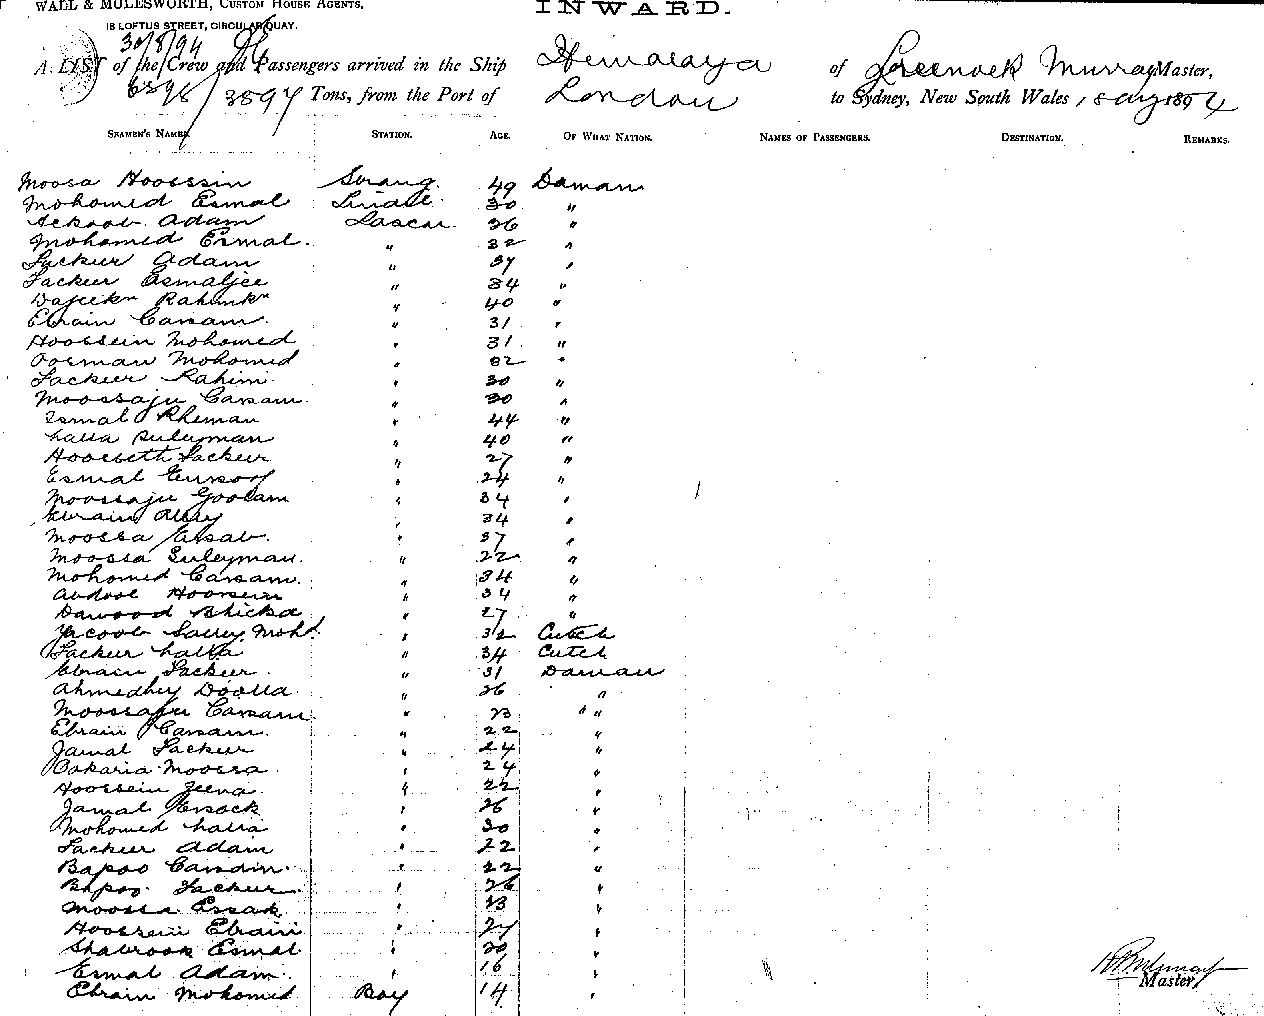 WALL & MULESWORTH, CUSTOM HOUSE AGENTS,
18 LOFTUS STREET, CIRCULAR QUAY.
INWARD.
30/8/94
A LIST of the Crew and Passengers arrived in the Ship Himalaya of Greenock Murray Master,
6898/3597 Tons, from the Port of London to Sydney, New South Wales, 1894
SEAMEN'S NAMES. STATION. AGE. OF WHAT NATION. NAMES OF PASSENGERS. DESTINATION. REMARKS.
Moosa Hoossein Serang 49 Daman
Mohomed Esmal 30 "
Adam Lascar 26 "
Mohamed Esmal " 32 "
Jackeer Adam " 37 "
Jackeer Esmaljee " 34 "
" 40 "
Ebrain Cassam " 31 "
Hoossein Mohomed " 31 "
Oosman Mohomed " 32 "
Jackeer Rahim " 30 "
Moossaju Cassam " 30 "
Esmal Rheman " 44 "
Lalla Suleyman " 40 "
Jackeer " 27 "
Esmal " 24 "
Moossaju Goolam " 34 "
Ebrain Ally " 34 "
Moossa " 37 "
Moossa Suleyman " 22 "
Mohomed Cassam " 34 "
Abdool Hoossein " 34 "
Dawood Bhicka " 27 "
Yacoob Mohd. " 32 Cutch
Jackeer Lalla " 34 Cutch
Ebrain Jackeer " 31 Daman
Ahmedbhy Doolla " 26 "
Moossaju Cassam " 23 " "
Ebrain Cassam " 22 "
Jamal Jackeer " 24 "
Bakaria Moossa " 24 "
Hoossein Jeeva " 22 "
Jamal Essack " 26 "
Mohomed Lalla " 30 "
Jackeer Adam " 22 "
Bapoo Camdin " 22 "
Bapoo Jackeer " 26 "
Moossa Essak " 23 "
Hoossein Ebrain " 27 "
Shabrook Esmal " 20 "
Esmal Adam " 16 "
Ebrain Mohomed Boy 14 "
Master